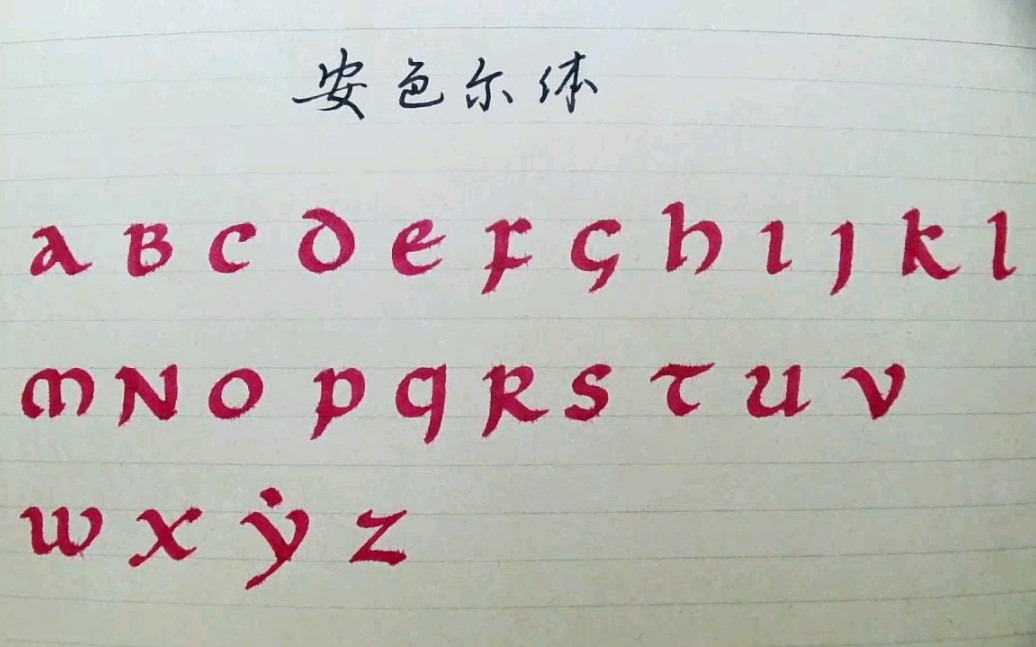 安色尔体
a B c d e F G h ı j k l
m N o p q R s τ u v
w x ẏ z